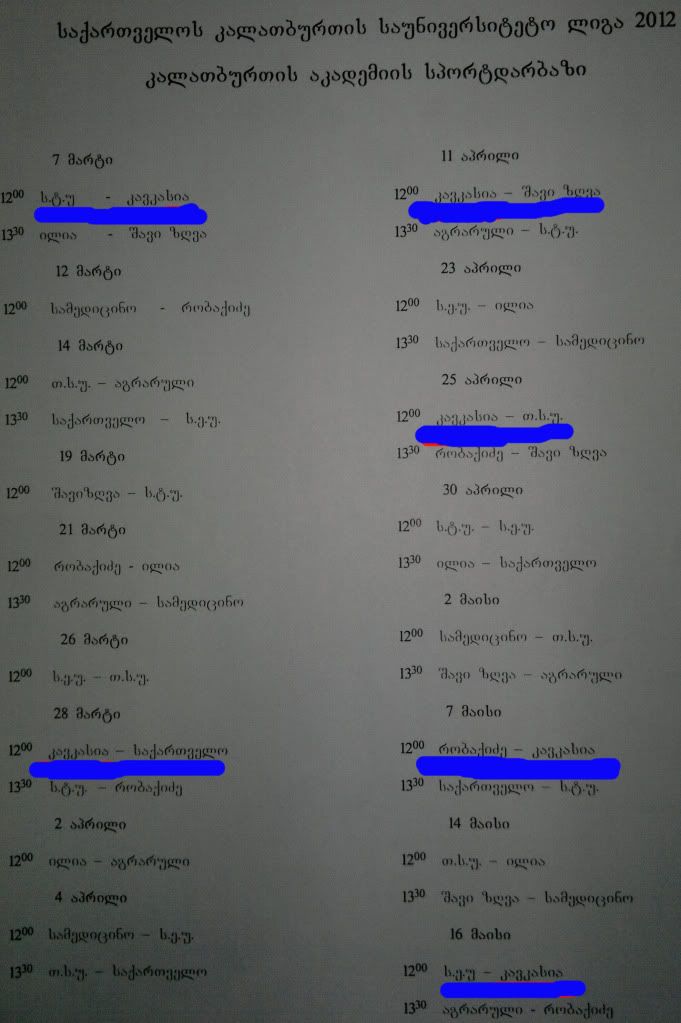 საქართველოს კალათბურთის საუნივერსიტეტო ლიგა 2012
კალათბურთის აკადემიის სპორტდარბაზი
7 მარტი
12⁰⁰ ს.ტ.უ - კავკასია
13³⁰ ილია - შავი ზღვა
12 მარტი
12⁰⁰ სამედიცინო - რობაქიძე
14 მარტი
12⁰⁰ თ.ს.უ. – აგრარული
13³⁰ საქართველო – ს.ე.უ.
19 მარტი
12⁰⁰ შავიზღვა – ს.ტ.უ.
21 მარტი
12⁰⁰ რობაქიძე - ილია
13³⁰ აგრარული – სამედიცინო
26 მარტი
12⁰⁰ ს.ე.უ. – თ.ს.უ.
28 მარტი
12⁰⁰ კავკასია – საქართველო
13³⁰ ს.ტ.უ. – რობაქიძე
2 აპრილი
12⁰⁰ ილია – აგრარული
4 აპრილი
12⁰⁰ სამედიცინო – ს.ე.უ.
13³⁰ თ.ს.უ. – საქართველო
11 აპრილი
12⁰⁰ კავკასია – შავი ზღვა
13³⁰ აგრარული – ს.ტ.უ.
23 აპრილი
12⁰⁰ ს.ე.უ. – ილია
13³⁰ საქართველო – სამედიცინო
25 აპრილი
12⁰⁰ კავკასია – თ.ს.უ.
13³⁰ რობაქიძე – შავი ზღვა
30 აპრილი
12⁰⁰ ს.ტ.უ. – ს.ე.უ.
13³⁰ ილია – საქართველო
2 მაისი
12⁰⁰ სამედიცინო – თ.ს.უ.
13³⁰ შავი ზღვა – აგრარული
7 მაისი
12⁰⁰ რობაქიძე – კავკასია
13³⁰ საქართველო – ს.ტ.უ.
14 მაისი
12⁰⁰ თ.ს.უ. – ილია
13³⁰ შავი ზღვა – სამედიცინო
16 მაისი
12⁰⁰ ს.ე.უ – კავკასია
13³⁰ აგრარული - რობაქიძე